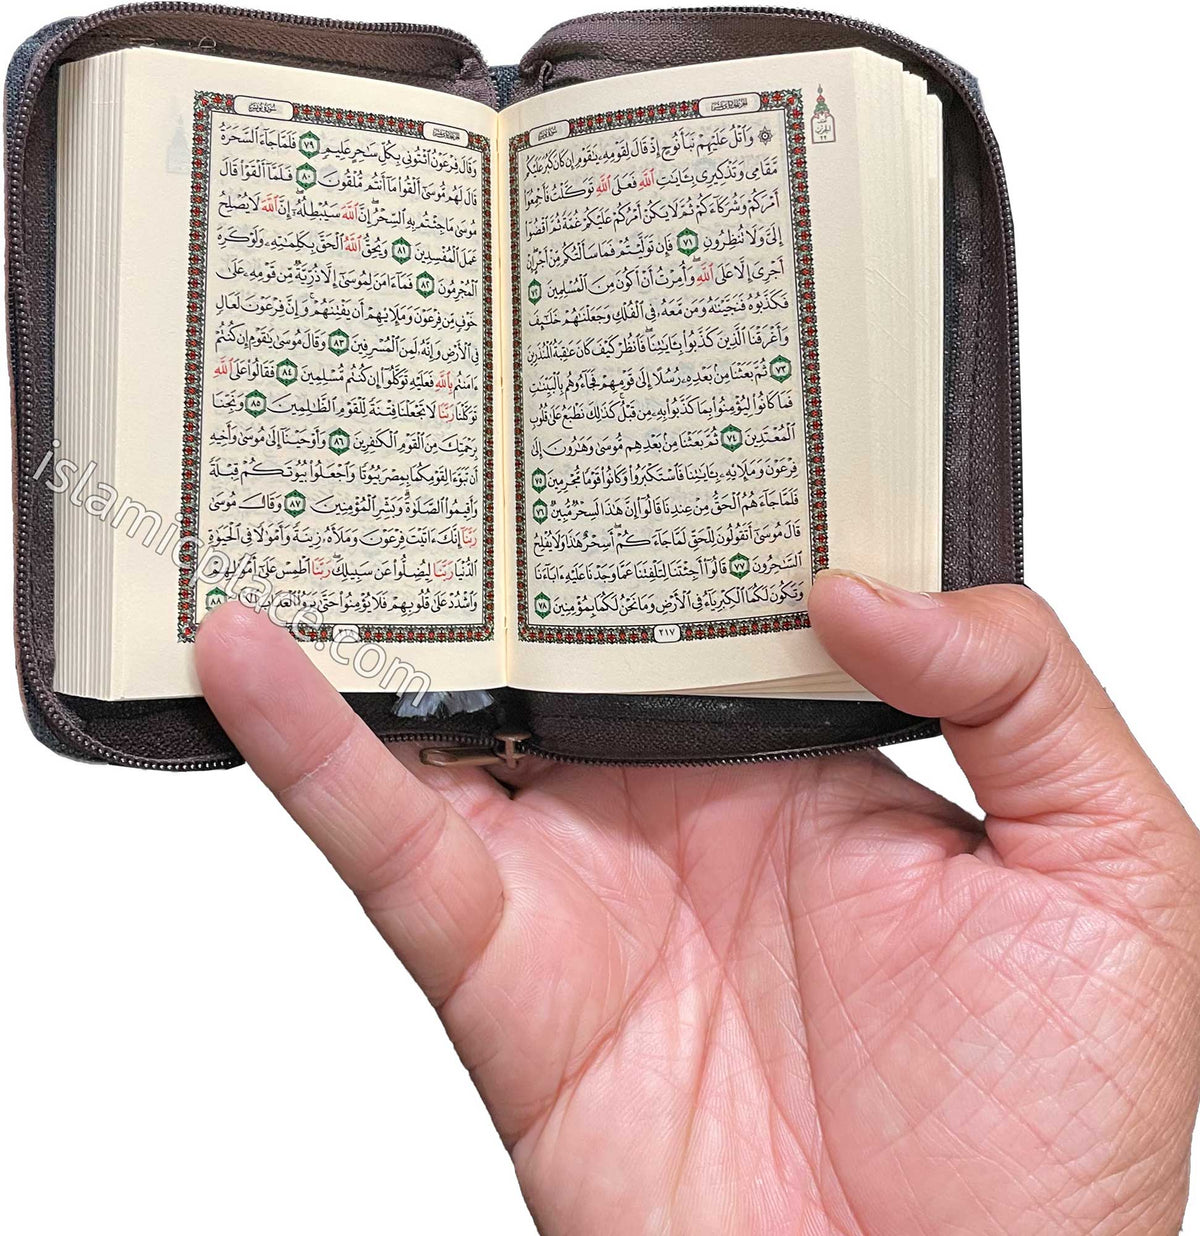 الجزء الحادي عشر
سورة يونس
۞ وَٱتۡلُ عَلَيۡهِمۡ نَبَأَ نُوحٍ إِذۡ قَالَ لِقَوۡمِهِۦ يَٰقَوۡمِ إِن كَانَ كَبُرَ عَلَيۡكُم
مَّقَامِي وَتَذۡكِيرِي بِـَٔايَٰتِ ٱللَّهِ فَعَلَى ٱللَّهِ تَوَكَّلۡتُ فَأَجۡمِعُوٓاْ
أَمۡرَكُمۡ وَشُرَكَآءَكُمۡ ثُمَّ لَا يَكُنۡ أَمۡرُكُمۡ عَلَيۡكُمۡ غُمَّةٗ ثُمَّ ٱقۡضُوٓاْ
إِلَيَّ وَلَا تُنظِرُونِ ٧١ فَإِن تَوَلَّيۡتُمۡ فَمَا سَأَلۡتُكُم مِّنۡ أَجۡرٍۖ إِنۡ
أَجۡرِيَ إِلَّا عَلَى ٱللَّهِۖ وَأُمِرۡتُ أَنۡ أَكُونَ مِنَ ٱلۡمُسۡلِمِينَ ٧٢
فَكَذَّبُوهُ فَنَجَّيۡنَٰهُ وَمَن مَّعَهُۥ فِي ٱلۡفُلۡكِ وَجَعَلۡنَٰهُمۡ خَلَٰٓئِفَ
وَأَغۡرَقۡنَا ٱلَّذِينَ كَذَّبُواْ بِـَٔايَٰتِنَاۖ فَٱنظُرۡ كَيۡفَ كَانَ عَٰقِبَةُ ٱلۡمُنذَرِينَ
٧٣ ثُمَّ بَعَثۡنَا مِنۢ بَعۡدِهِۦ رُسُلًا إِلَىٰ قَوۡمِهِمۡ فَجَآءُوهُم بِٱلۡبَيِّنَٰتِ
فَمَا كَانُواْ لِيُؤۡمِنُواْ بِمَا كَذَّبُواْ بِهِۦ مِن قَبۡلُۚ كَذَٰلِكَ نَطۡبَعُ عَلَىٰ قُلُوبِ
ٱلۡمُعۡتَدِينَ ٧٤ ثُمَّ بَعَثۡنَا مِنۢ بَعۡدِهِم مُّوسَىٰ وَهَٰرُونَ إِلَىٰ
فِرۡعَوۡنَ وَمَلَإِيْهِۦ بِـَٔايَٰتِنَا فَٱسۡتَكۡبَرُواْ وَكَانُواْ قَوۡمٗا مُّجۡرِمِينَ ٧٥
فَلَمَّا جَآءَهُمُ ٱلۡحَقُّ مِنۡ عِندِنَا قَالُوٓاْ إِنَّ هَٰذَا لَسِحۡرٞ مُّبِينٞ ٧٦
قَالَ مُوسَىٰٓ أَتَقُولُونَ لِلۡحَقِّ لَمَّا جَآءَكُمۡۖ أَسِحۡرٌ هَٰذَا وَلَا يُفۡلِحُ
ٱلسَّٰحِرُونَ ٧٧ قَالُوٓاْ أَجِئۡتَنَا لِتَلۡفِتَنَا عَمَّا وَجَدۡنَا عَلَيۡهِ ءَابَآءَنَا
وَتَكُونَ لَكُمَا ٱلۡكِبۡرِيَآءُ فِي ٱلۡأَرۡضِ وَمَا نَحۡنُ لَكُمَا بِمُؤۡمِنِينَ ٧٨
٢١٧
الجزء الحادي عشر
سورة يونس
وَقَالَ فِرۡعَوۡنُ ٱئۡتُونِي بِكُلِّ سَٰحِرٍ عَلِيمٖ ٧٩ فَلَمَّا جَآءَ ٱلسَّحَرَةُ
قَالَ لَهُم مُّوسَىٰٓ أَلۡقُواْ مَآ أَنتُم مُّلۡقُونَ ٨٠ فَلَمَّآ أَلۡقَوۡاْ قَالَ
مُوسَىٰ مَا جِئۡتُم بِهِ ٱلسِّحۡرُۖ إِنَّ ٱللَّهَ سَيُبۡطِلُهُۥٓ إِنَّ ٱللَّهَ لَا يُصۡلِحُ
عَمَلَ ٱلۡمُفۡسِدِينَ ٨١ وَيُحِقُّ ٱللَّهُ ٱلۡحَقَّ بِكَلِمَٰتِهِۦ وَلَوۡ كَرِهَ
ٱلۡمُجۡرِمُونَ ٨٢ فَمَآ ءَامَنَ لِمُوسَىٰٓ إِلَّا ذُرِّيَّةٞ مِّن قَوۡمِهِۦ عَلَىٰ
خَوۡفٖ مِّن فِرۡعَوۡنَ وَمَلَإِيْهِمۡ أَن يَفۡتِنَهُمۡۚ وَإِنَّ فِرۡعَوۡنَ لَعَالٖ
فِي ٱلۡأَرۡضِ وَإِنَّهُۥ لَمِنَ ٱلۡمُسۡرِفِينَ ٨٣ وَقَالَ مُوسَىٰ يَٰقَوۡمِ إِن كُنتُمۡ
ءَامَنتُم بِٱللَّهِ فَعَلَيۡهِ تَوَكَّلُوٓاْ إِن كُنتُم مُّسۡلِمِينَ ٨٤ فَقَالُواْ عَلَى ٱللَّهِ
تَوَكَّلۡنَا رَبَّنَا لَا تَجۡعَلۡنَا فِتۡنَةٗ لِّلۡقَوۡمِ ٱلظَّٰلِمِينَ ٨٥ وَنَجِّنَا
بِرَحۡمَتِكَ مِنَ ٱلۡقَوۡمِ ٱلۡكَٰفِرِينَ ٨٦ وَأَوۡحَيۡنَآ إِلَىٰ مُوسَىٰ وَأَخِيهِ
أَن تَبَوَّءَا لِقَوۡمِكُمَا بِمِصۡرَ بُيُوتٗا وَٱجۡعَلُواْ بُيُوتَكُمۡ قِبۡلَةٗ
وَأَقِيمُواْ ٱلصَّلَوٰةَۗ وَبَشِّرِ ٱلۡمُؤۡمِنِينَ ٨٧ وَقَالَ مُوسَىٰ
رَبَّنَآ إِنَّكَ ءَاتَيۡتَ فِرۡعَوۡنَ وَمَلَأَهُۥ زِينَةٗ وَأَمۡوَٰلٗا فِي ٱلۡحَيَوٰةِ
ٱلدُّنۡيَا رَبَّنَا لِيُضِلُّواْ عَن سَبِيلِكَۖ رَبَّنَا ٱطۡمِسۡ عَلَىٰٓ أَمۡوَٰلِهِمۡ
وَٱشۡدُدۡ عَلَىٰ قُلُوبِهِمۡ فَلَا يُؤۡمِنُواْ حَتَّىٰ يَرَوُاْ ٱلۡعَذَابَ ٨٨
islamicplace.com